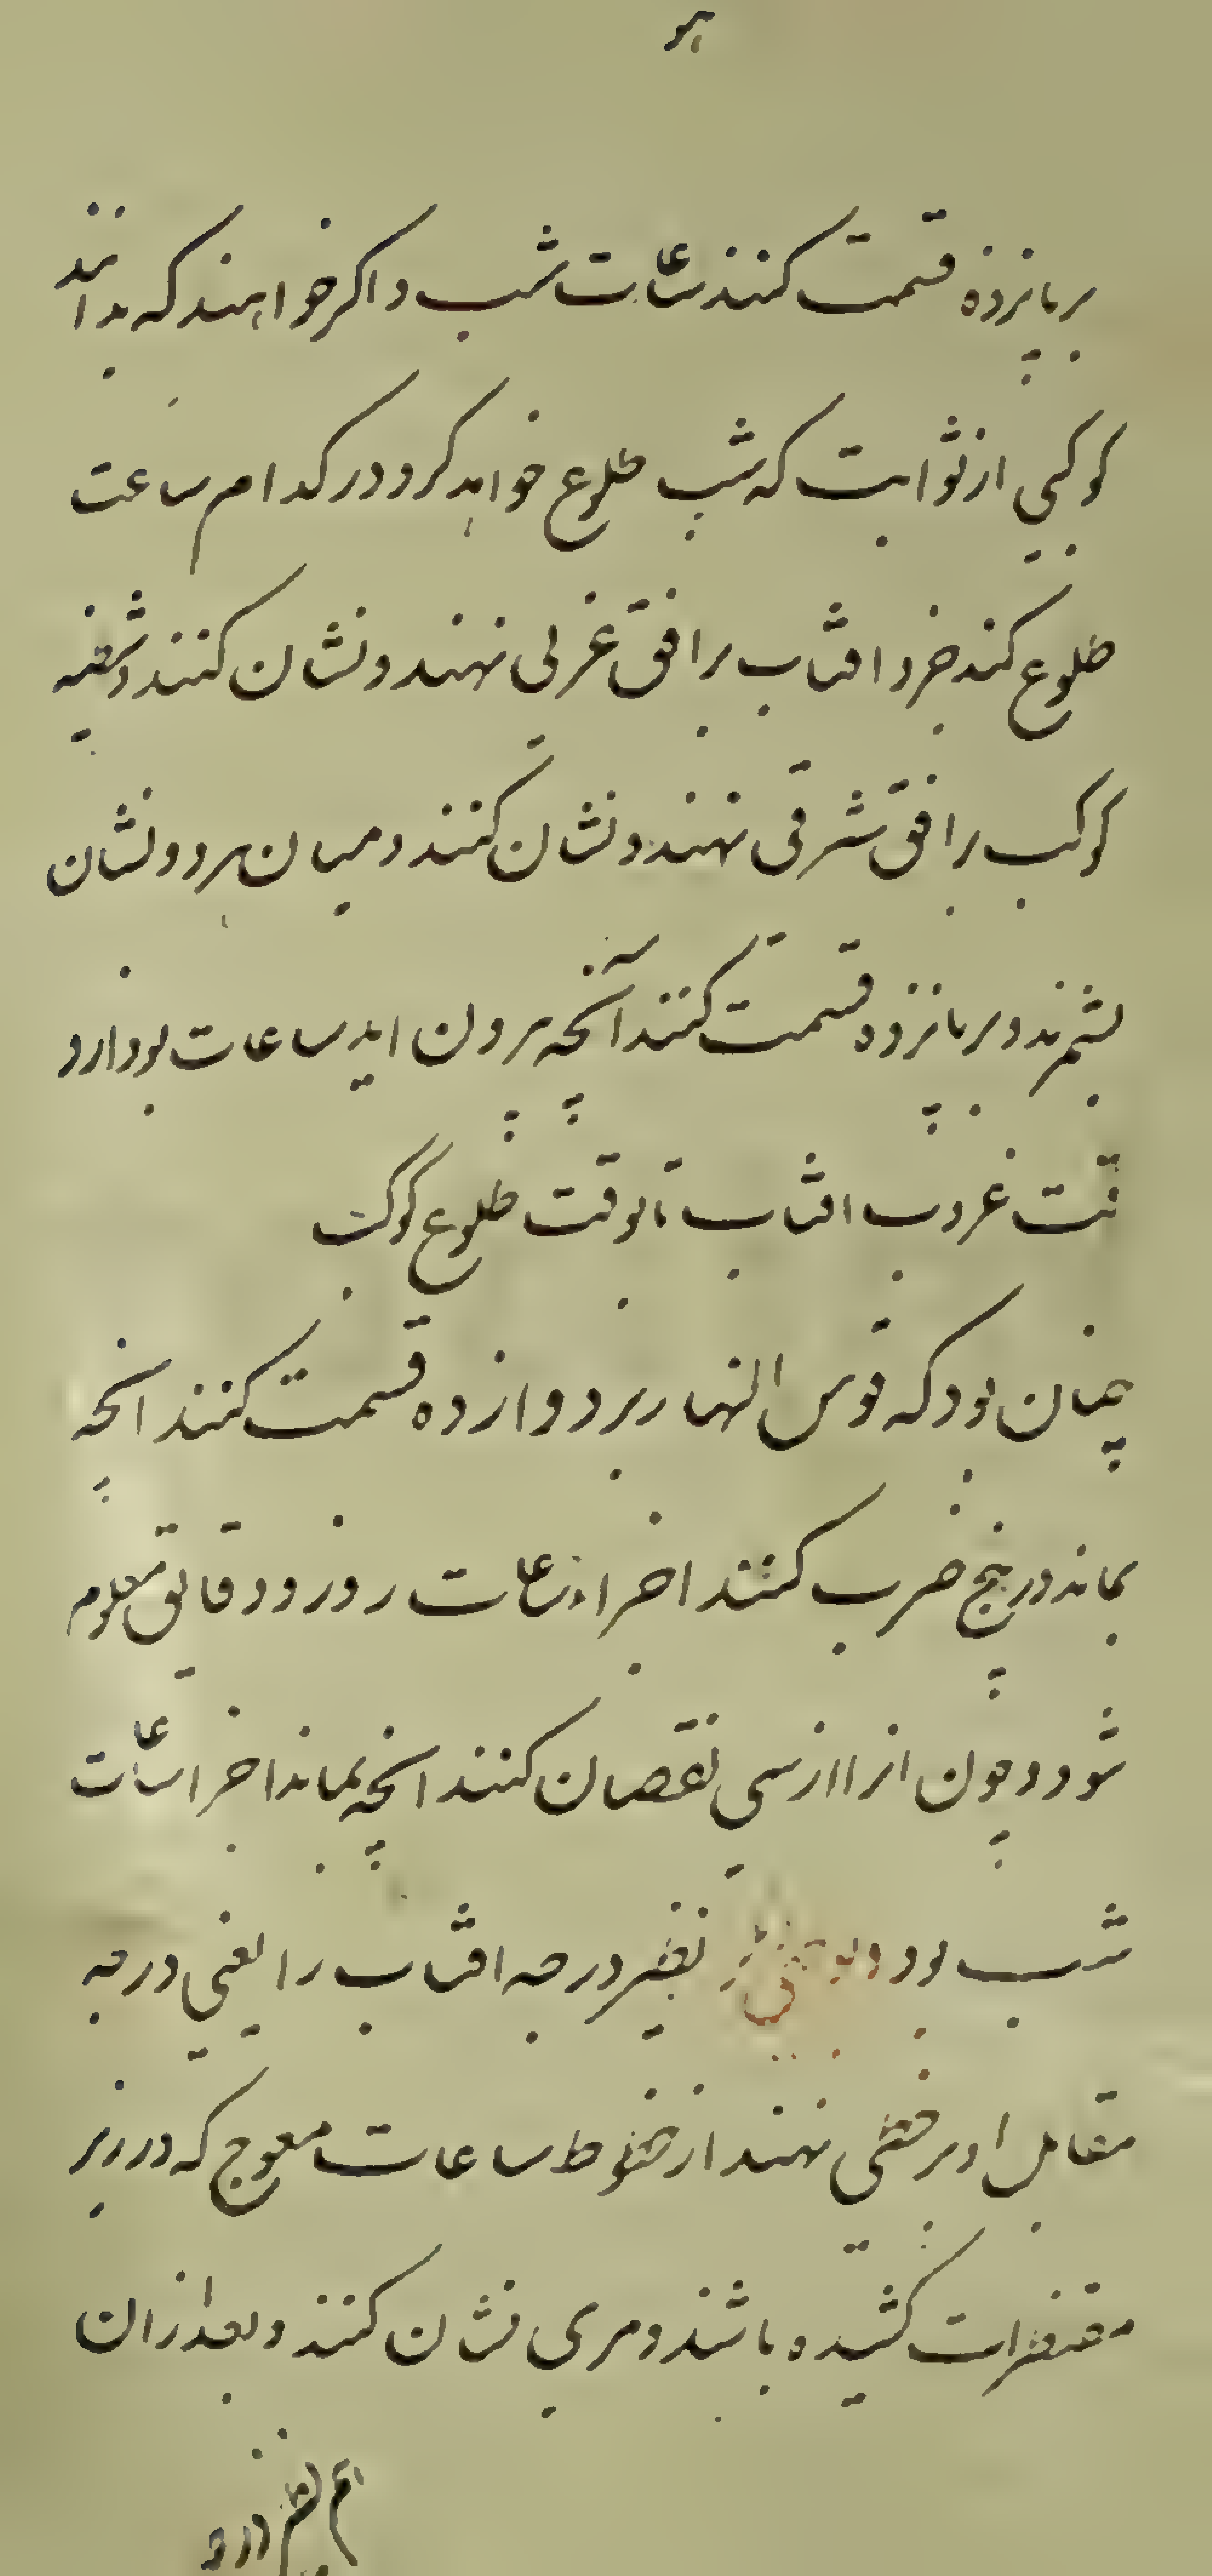 بر پانزده قسمت کنند ساعات شب و اکر خواهند که بدانند
کوکبی از ثوابت که شب طلوع خواهد کرد در کدام ساعت
طلوع کند جزو افتاب بر افق غربی نهند و نشان کنند و شظیه
کوکب بر افق شرقی نهند و نشان کنند و میان هر دو نشان
بشمرند و بر پانزده قسمت کنند آنچه بیرون اید ساعات بود از و
قت غروب افتاب تا بوقت طلوع کوکب
چنان بود که قوس النهار بر دوازده قسمت کنند انچه
بماند در پنج ضرب کنند اجزاء ساعات روز و دقایق معلوم
شود و چون انرا از سی نقصان کنند انچه بماند اجزا ساعات
شب بود نظیر درجه افتاب را یعنی درجه
مقابل او بر خطی نهند از خطوط ساعات معوج که در زیر
مقنطرات کشیده باشند و مری نشان کنند و بعد ازان